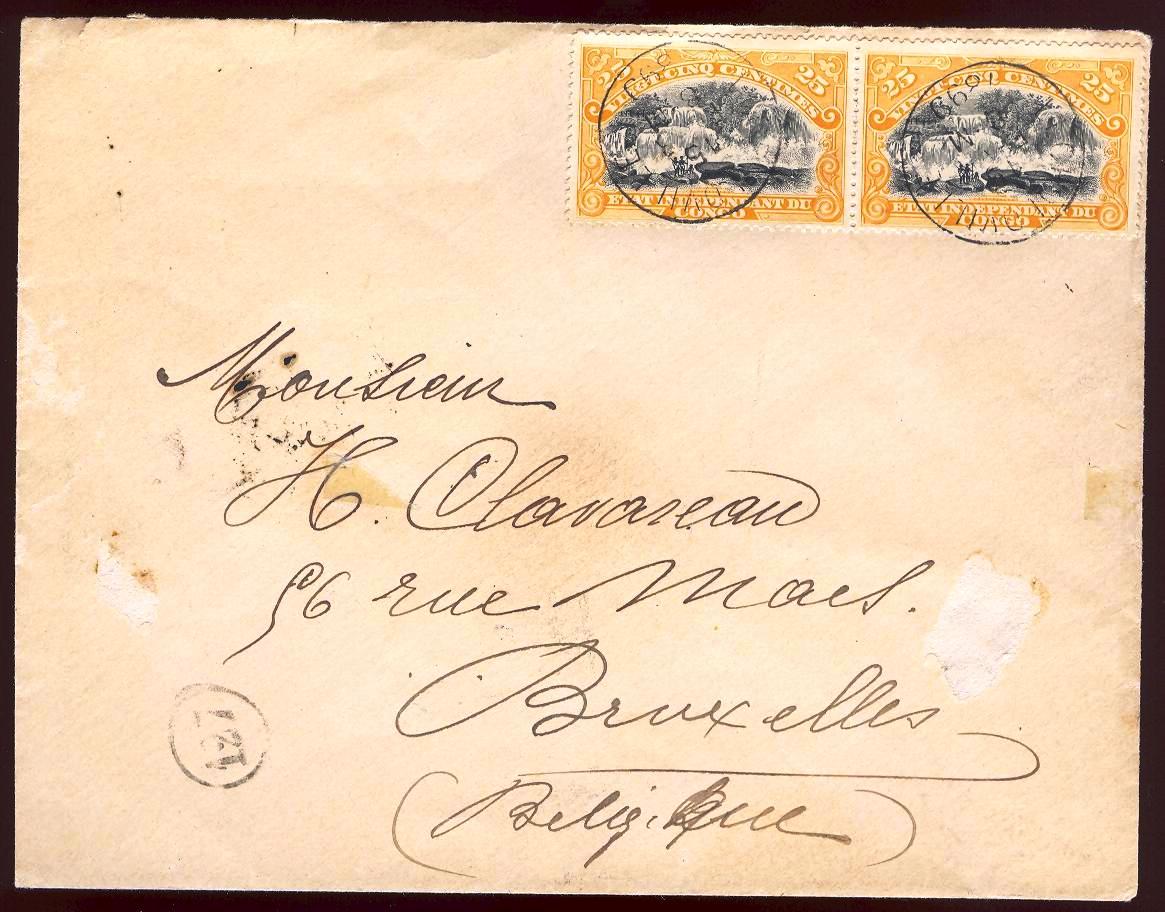 25 VINGT-CINQ CENTIMES 25
ETAT INDEPENDANT DU
CONGO
25 VINGT-CINQ CENTIMES 25
ETAT INDEPENDANT DU
CONGO
1899
Monsieur
H. Clavareau
56 rue Maes.
Bruxelles
(Belgique)
127